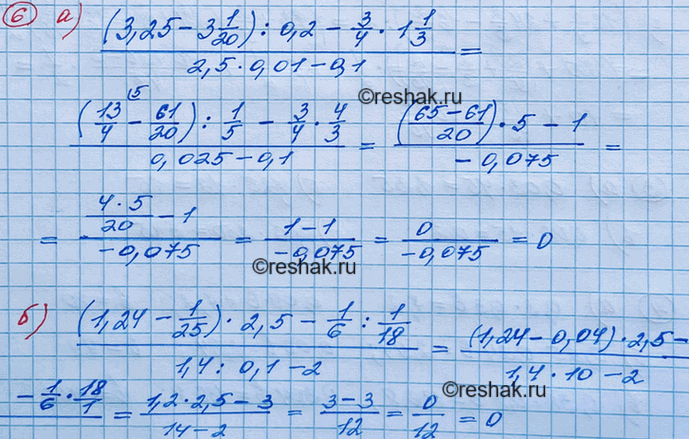 6 а) ((3,25 − 3 1/20) : 0,2 − 3/4 · 1 1/3) / (2,5 · 0,01 − 0,1) =
©reshak.ru
((13/4 ⁽⁵ − 61/20) : 1/5 − 3/4 · 4/3) / (0,025 − 0,1) = (((65 − 61)/20) · 5 − 1) / (−0,075) =
= ((4 · 5)/20 − 1) / (−0,075) = (1 − 1)/(−0,075) = 0/(−0,075) = 0
©reshak.ru
б) ((1,24 − 1/25) · 2,5 − 1/6 : 1/18) / (1,4 : 0,1 − 2) = ((1,24 − 0,04) · 2,5 −) / (1,4 · 10 − 2)
− 1/6 · 18/1 = (1,2 · 2,5 − 3)/(14 − 2) = (3 − 3)/12 = 0/12 = 0